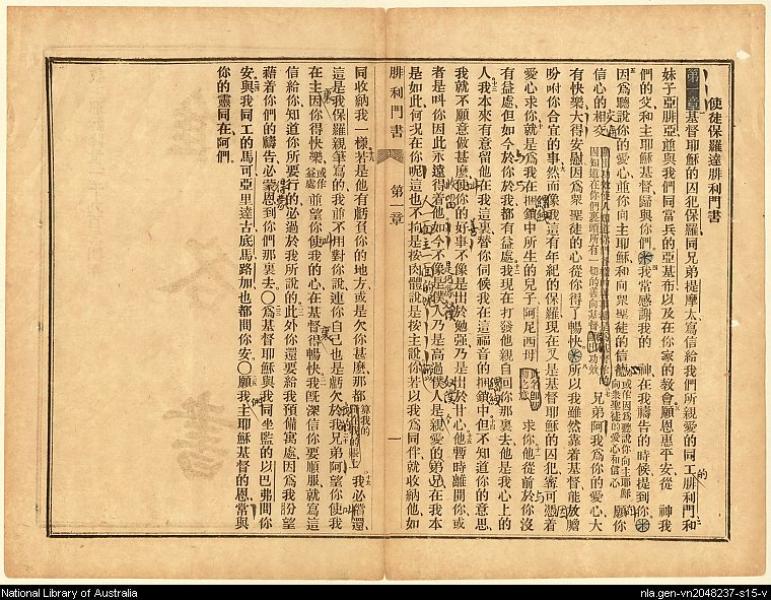 使徒保羅達腓利門書
第一章 基督耶穌的囚犯保羅同兄弟提摩太寫信給我們所親愛的同工腓利門和
妹子亞腓亞並與我們同當兵的亞基布以及在你家的教會願恩惠平安從 神我
們的父和主耶穌基督歸與你們○我常感謝我的 神在我禱告的時候提到你
因爲聽說你的愛心並你向主耶穌和向衆聖徒的信心 或作因爲聽說你向主耶穌向衆聖徒的愛心和信心 願你
信心的相交 兄弟阿我爲你的愛心大
有快樂大得安慰因爲衆聖徒的心從你得了暢快○所以我雖然靠着基督能放膽
吩咐你合宜的事然而像我這有年紀的保羅現在又是基督耶穌的囚犯寧可憑着
愛心求你就是爲我在捆鎖中所生的兒子阿尼西母 求你他從前於你沒
有益處但如今於你於我都有益處我現在打發他親自回你那裏去他是我心上的
人我本來有意留他在我這裏替你伺候我在這福音的捆鎖中但不知道你的意思
我就不願意做甚麼使你的好事不像是出於勉強乃是出於甘心他暫時離開你或
者是叫你因此永遠得着他如今不像是僕人乃是高過僕人是親愛的弟兄在我本
是如此何況在你呢這也不拘是按肉體說是按主說你若以我爲同伴就收納他如
腓利門書 第一章 一
同收納我一樣若是他有虧負你的地方或是欠你甚麼那都算我的 我必償還
這是我保羅親筆寫的我並不用對你說連你自己也是虧欠於我兄弟阿望你使我
在主因你得快樂 或作益處 並望你使我的心在基督得暢快我旣深信你要順服就寫這
信給你知道你所要行的必過於我所說的此外你還要給我預備寓處因爲我盼望
藉着你們的禱告必蒙恩到你們那裏去○爲基督耶穌與我同坐監的以巴弗問你
安與我同工的馬可亞里達古底馬路加也都問你安○願我主耶穌基督的恩常與
你的靈同在阿們
National Library of Australia
nla.gen-vn2048237-s15-v